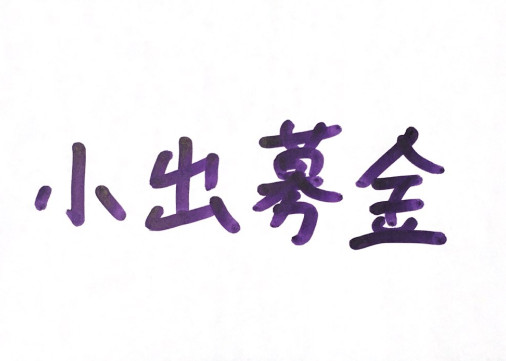 小出募金